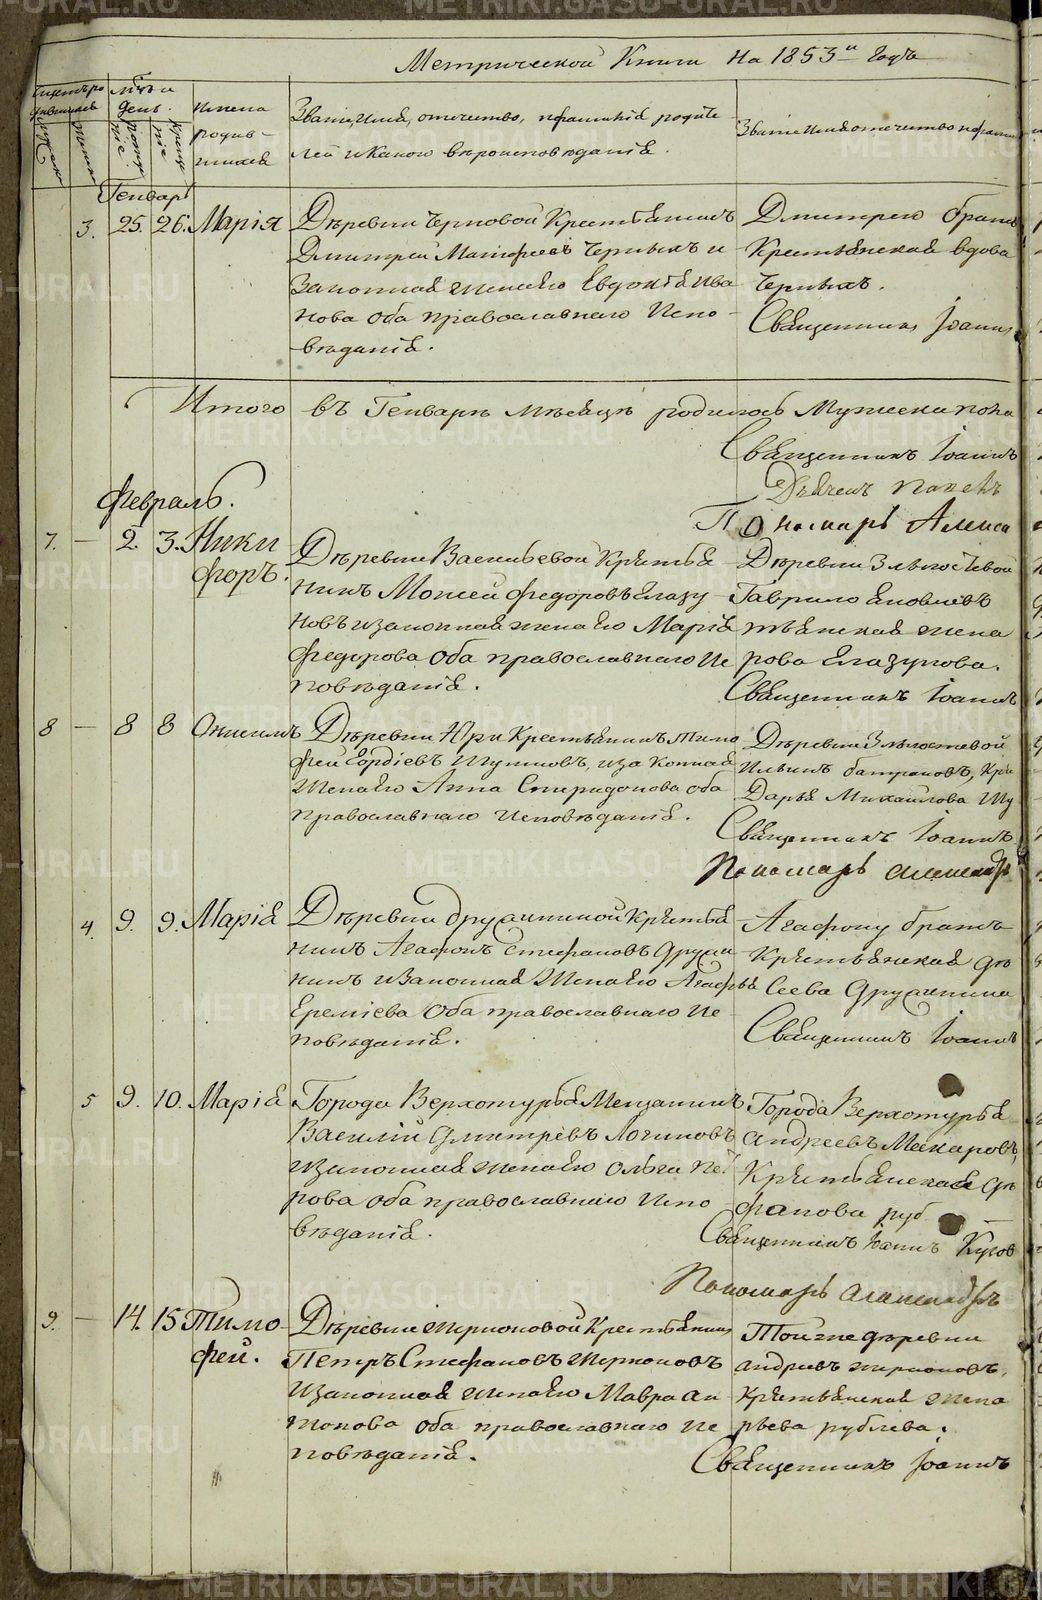 Метрической Книги На 1853й Годъ
Счетъ ро
дившихся
Мѣ-ъ и
день.
Имена
родив-
шихся
Званіе, имя, отчество, и фамилія родите
лей и какого вѣроисповѣданія.
Званіе имя отчество и фамилія
Генварь
3. 25. 26. Марія
Деревни Черновой Крестьянинъ
Дмитрей Матфеевъ Черныхъ и
Законная жена его Евдокія Ива
нова оба православнаго Испо-
вѣданія.
Дмитрею братъ
Крестьянская вдова
Черныхъ.
Священникъ Іоаннъ
Итого въ Генварѣ мѣсяцѣ родилось Мужеска пола
Священникъ Іоаннъ
Дьячекъ
Пономарь Алекса
Февраль.
7. — 2. 3. Ники
форъ.
Деревни Васильевой Крестья
нинъ Моисей Федоровъ Глазу
новъ и законная жена его Марія
Федорова оба православнаго Ис
повѣданія.
Деревни
Гаврило Яковлевъ
тьянская жена
рова Глазунова.
Священникъ Іоаннъ
8 — 8 8 Онисимъ
Деревни Юри Крестьянинъ Тимо
фей Гордіевъ, и законная
жена его Анна Спиридонова оба
православнаго Исповѣданія.
Деревни
Ильинъ, Кре
Дарья Михайлова Шу
Священникъ Іоаннъ
Пономарь Александръ
4. 9. 9. Марія
Деревни Дружининой Крестья
нинъ Агафонъ Стефановъ Дружи
нинъ и Законная Жена его Агафья
Еремiева Оба православнаго Ис
повѣданія.
Агафону братъ
Крестьянская дѣ
сеева Дружинина
Священникъ Іоаннъ
5 9. 10. Марія
Города Верхотурья Мещанинъ
Василій Дмитревъ Логиновъ
и законная жена его Ольга Пет
рова оба православнаго Испо
вѣданія.
Города Верхотурья
Андреевъ Макаровъ,
Крестьянская дѣ
фанова руб
Священникъ Іоаннъ
Пономарь Александръ
9. — 14. 15 Тимо-
фей.
Деревни Жерноковой Крестьянинъ
Петръ Стефановъ Жерноковъ
и законная жена его Мавра Ан
тонова оба православнаго Ис
повѣданія.
Той же деревни
Андреевъ Жерноковъ,
Крестьянская жена
рьева рублева.
Священникъ Іоаннъ
METRIKI.GASO-URAL.RU